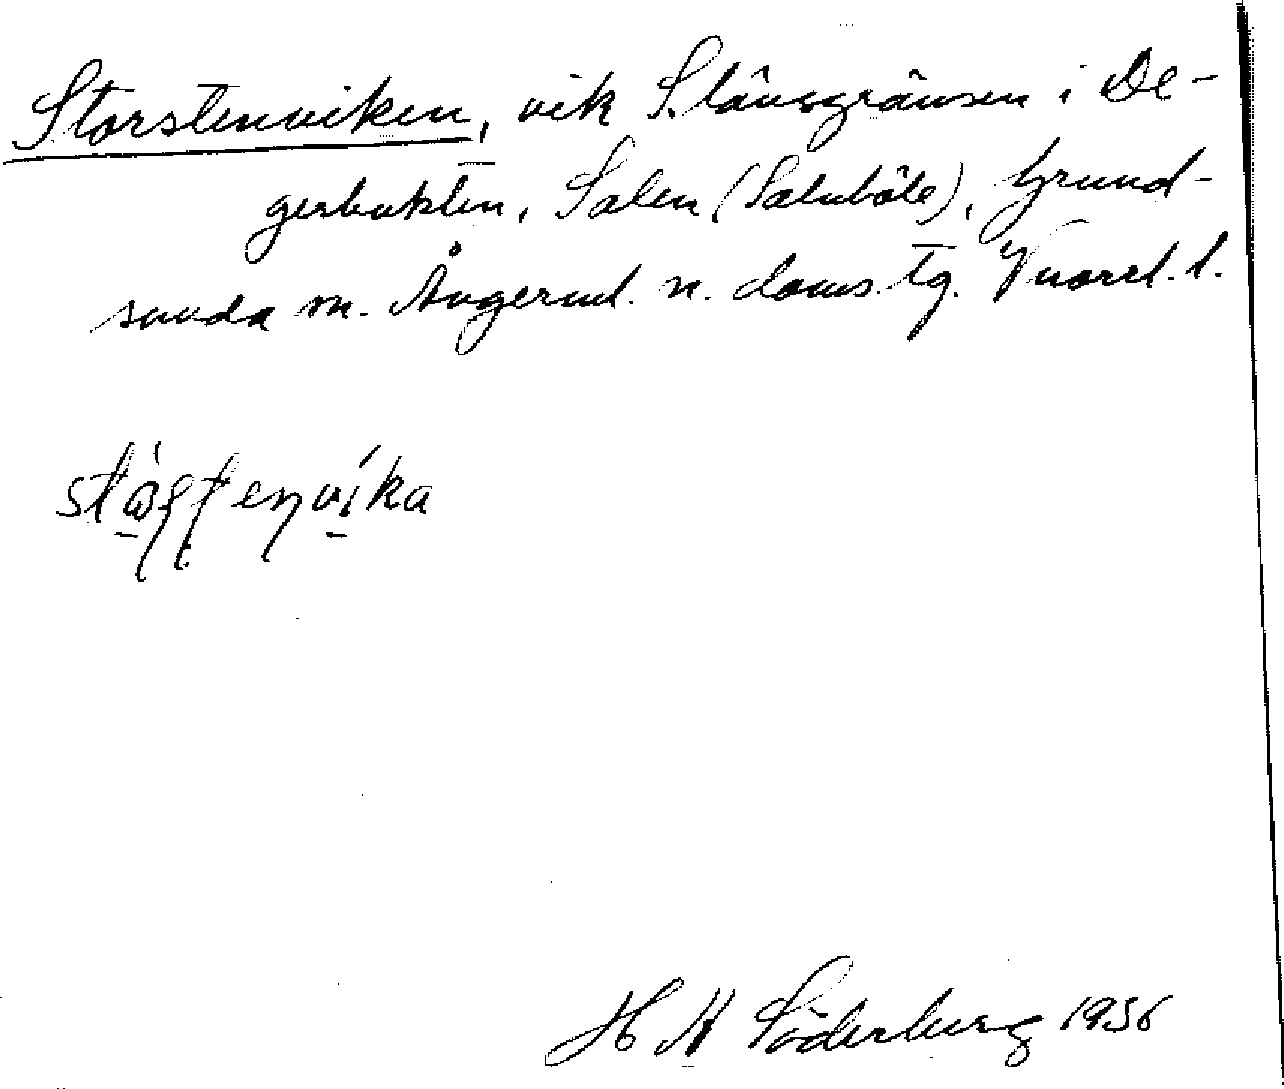 Storstenviken, vik S. länsgränsen i De-
gerbukten, Salen (Salnböle), Grund-
sunda sn. Ångerml. n. doms. tg. Vnorrl. l.
H H Söderberg 1936